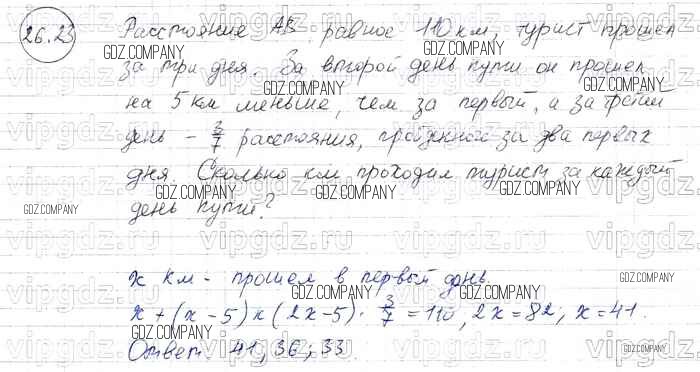 26.23 Расстояние AB равное 110 км, турист прошел
за три дня. За второй день пути он прошел
на 5 км меньше, чем за первый, а за третий
день - 3/7 расстояния, пройденной за два первых
дня. Сколько км проходил турист за каждый
день пути?
x км - прошел в первый день.
x + (x - 5) + (2x - 5) · 3/7 = 110, 2x = 82; x = 41.
Ответ 41; 36; 33.
GDZ.COMPANY
vipgdz.ru